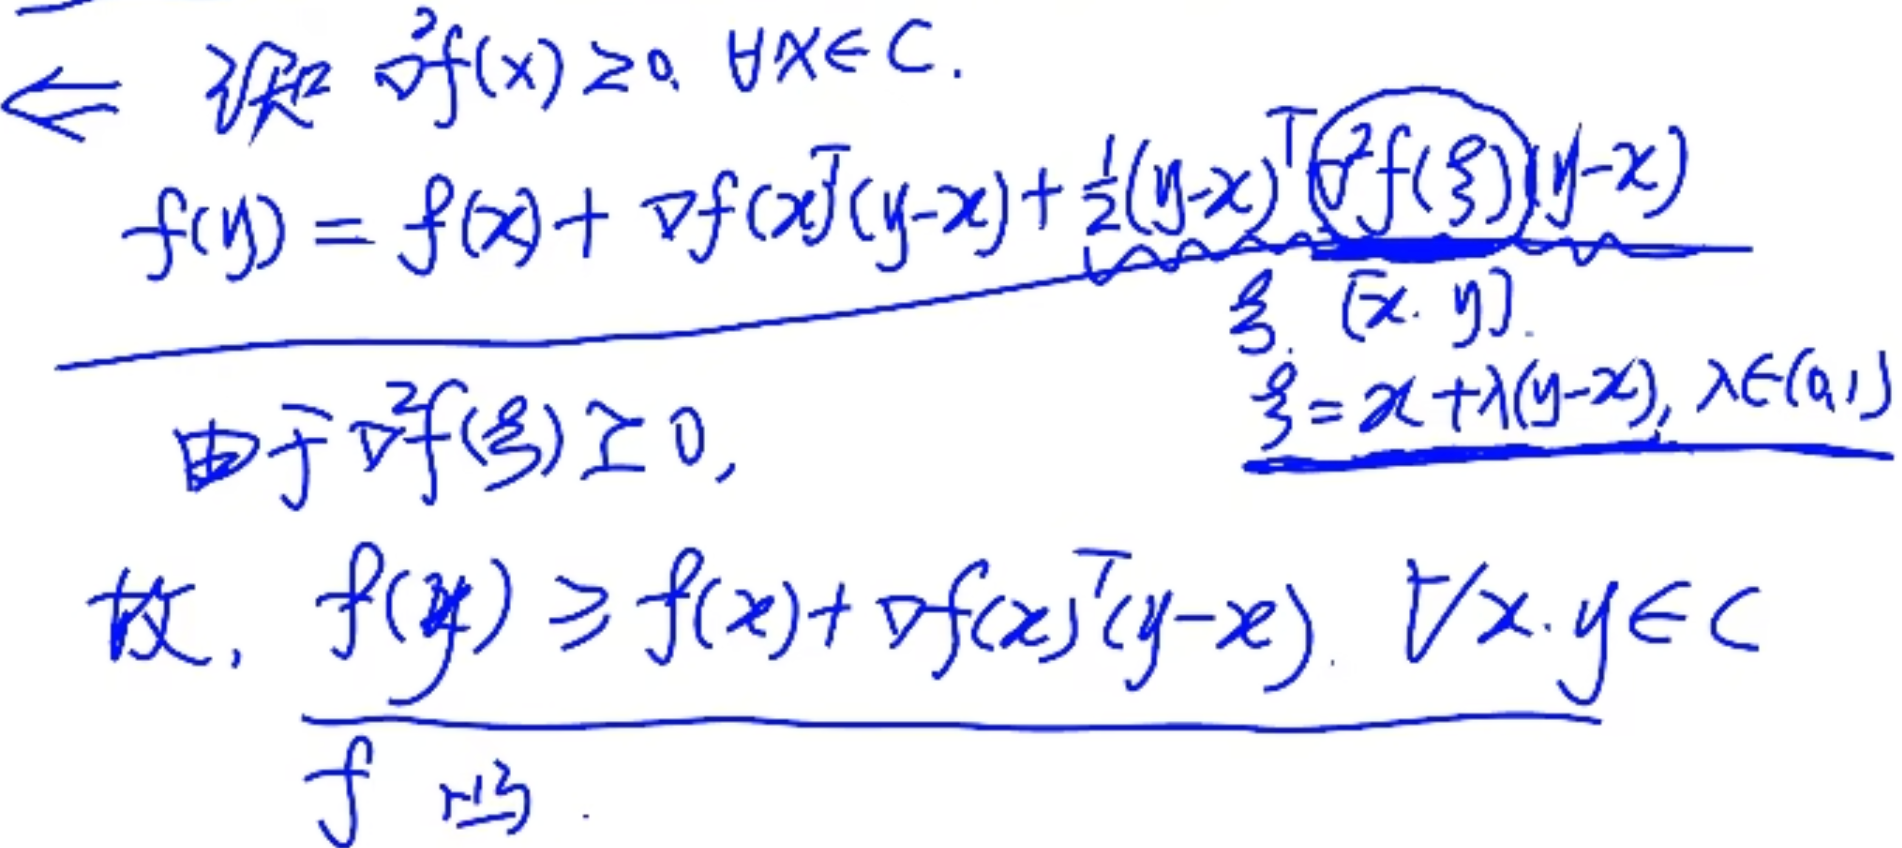 ⇐ 已知 ∇²f(x) ≥ 0, ∀x∈C.
f(y) = f(x) + ∇f(x)ᵀ(y-x) + ½(y-x)ᵀ∇²f(ξ)(y-x)
ξ. [x. y].
ξ = x + λ(y-x), λ∈(0,1)
由于 ∇²f(ξ) ⪰ 0,
故, f(y) ≥ f(x) + ∇f(x)ᵀ(y-x). ∀x.y∈C
f 凸.